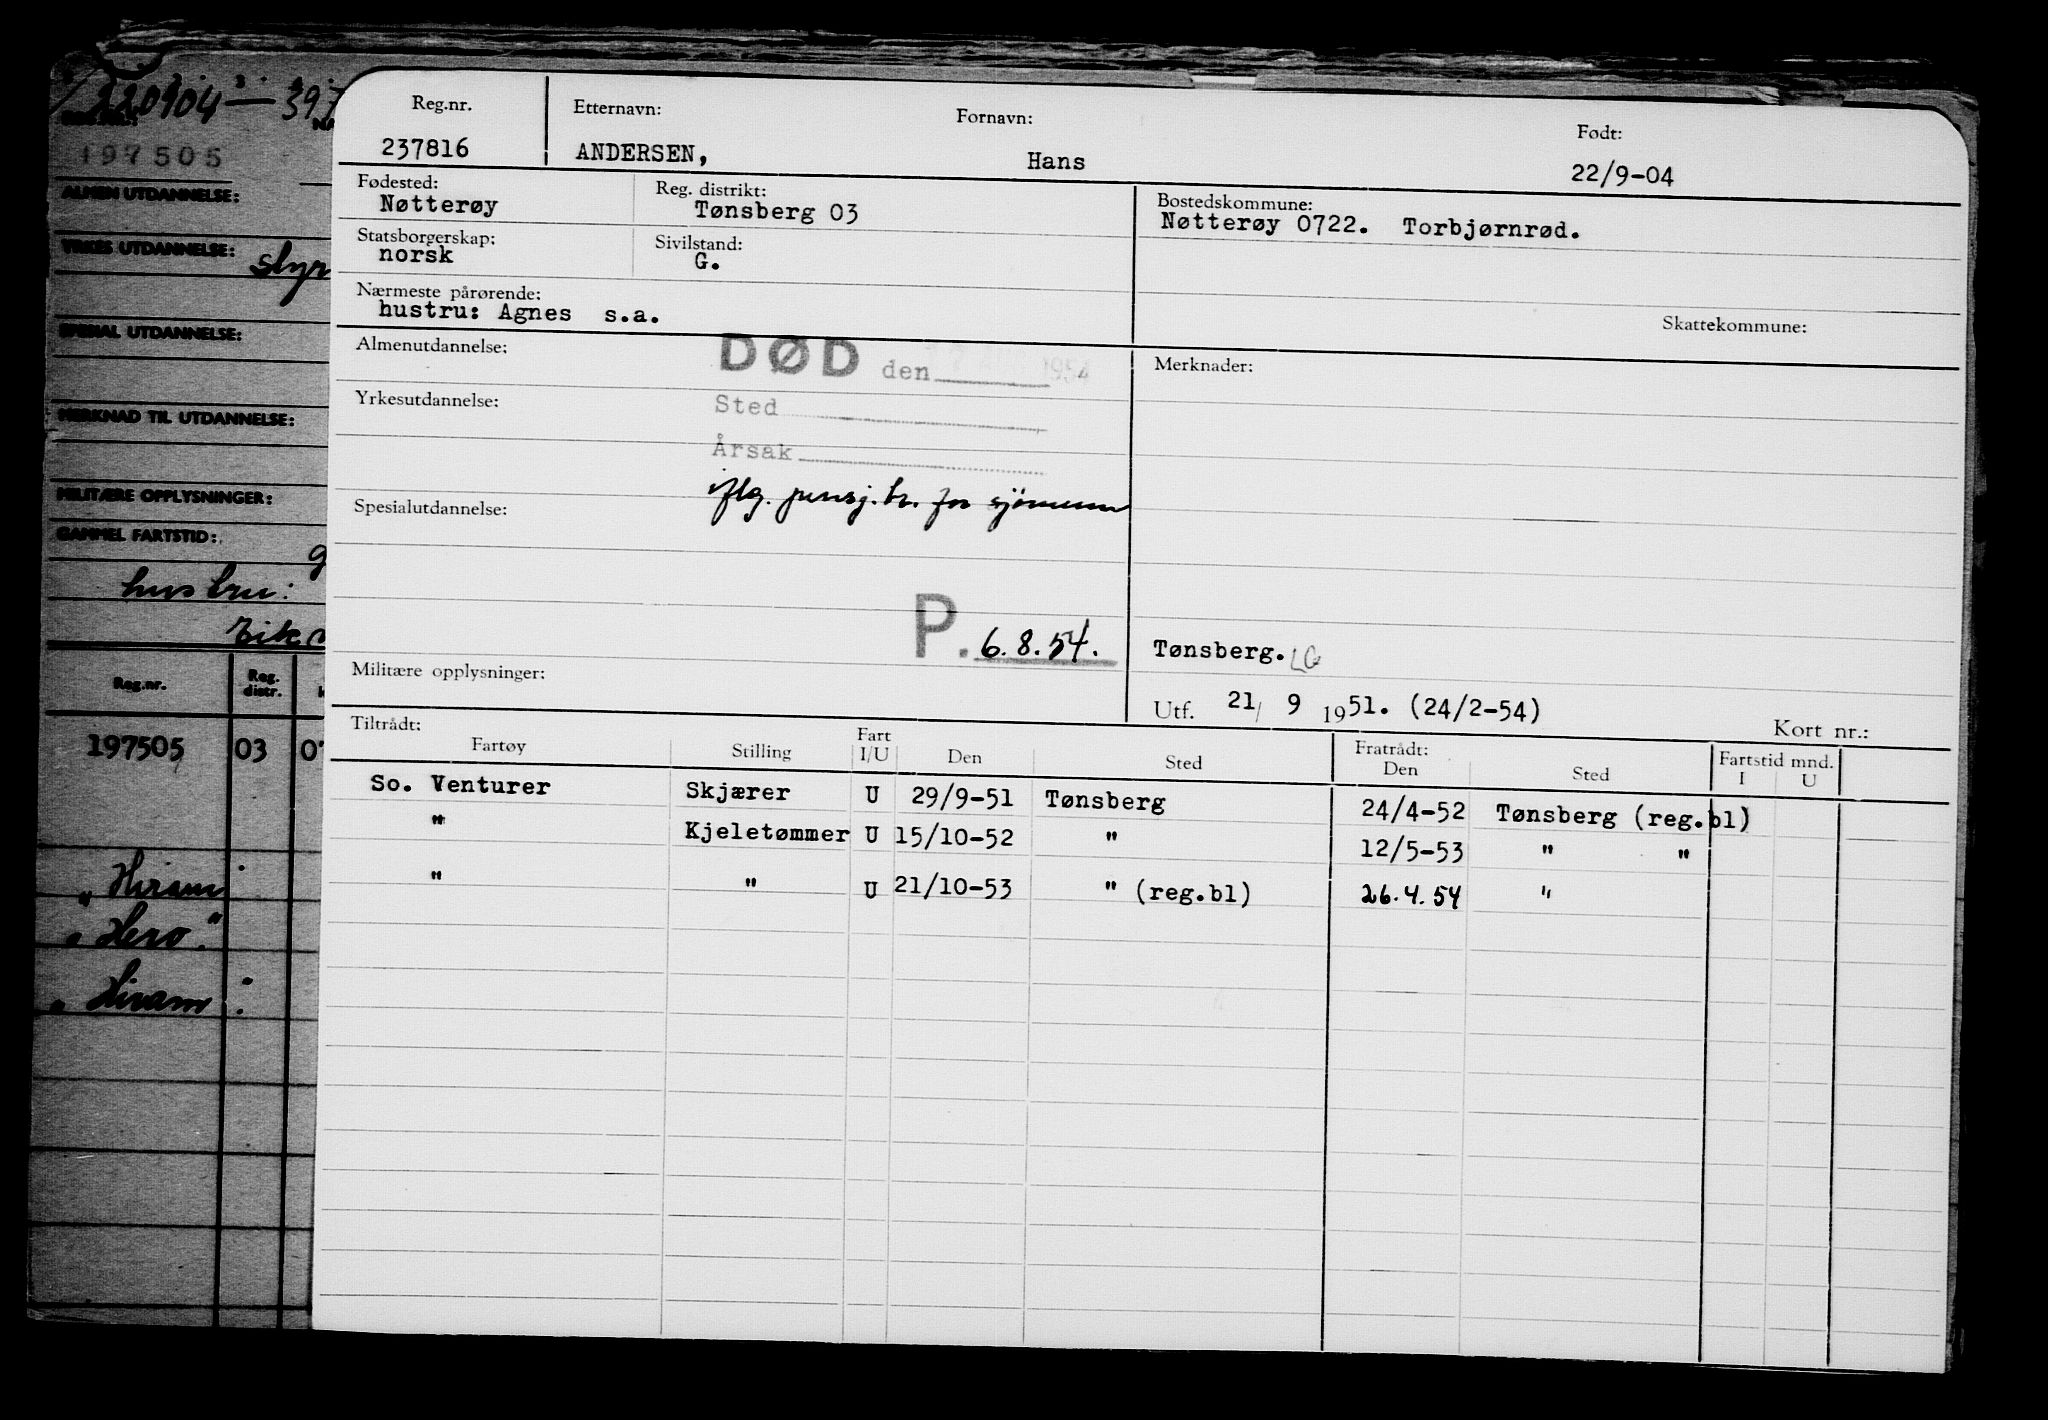 220904 — 397
197505
ALMEN UTDANNELSE:
YRKES UTDANNELSE:
styr
SPESIAL UTDANNELSE:
MERKNAD TIL UTDANNELSE:
MILITÆRE OPPLYSNINGER:
GAMMEL FARTSTID:
g
hustru:
Reg.nr. Reg. distr.
197505 03 07
"Hiram"
"Hero"
"Hiram"
Reg.nr. Etternavn: Fornavn: Født:
237816 ANDERSEN, Hans 22/9-04
Fødested: Reg. distrikt: Bostedskommune:
Nøtterøy Tønsberg 03 Nøtterøy 0722. Torbjørnrød.
Statsborgerskap: Sivilstand:
norsk G.
Nærmeste pårørende:
hustru: Agnes s.a.
Skattekommune:
Almenutdannelse: DØD den 1954 Merknader:
Yrkesutdannelse: Sted
Årsak
iflg. pensj.tr. for sjømenn
Spesialutdannelse:
P. 6.8.54.
Tønsberg. LG
Militære opplysninger:
Utf. 21/ 9 1951. (24/2-54)
Kort nr.:
Tiltrådt: Fratrådt: Fartstid mnd.
Fartøy Stilling Fart I/U Den Sted Den Sted I U
So. Venturer Skjærer U 29/9-51 Tønsberg 24/4-52 Tønsberg (reg.bl)
" Kjeletømmer U 15/10-52 " 12/5-53 " "
" " U 21/10-53 " (reg.bl) 26.4.54 "